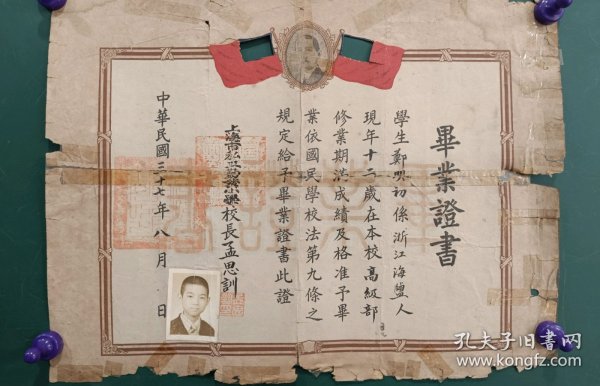 畢業證書
學生鄭興初係浙江海鹽人
現年十二歲在本校高級部
修業期滿成績及格准予畢
業依國民學校法第九條之
規定給予畢業證書此證
校長孟思訓
中華民國三十七年八月 日
孔夫子旧书网
www.kongfz.com